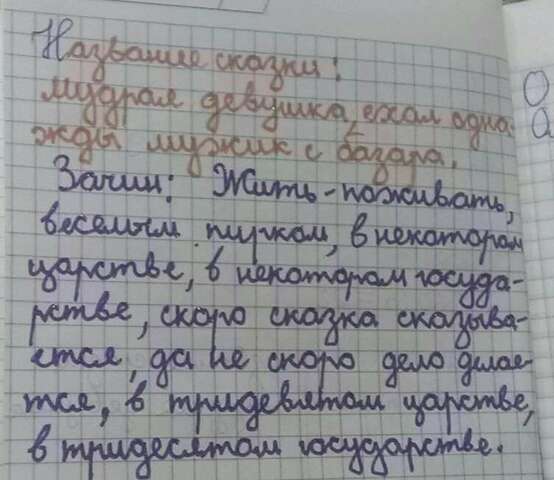 Название сказки:
мудрая девушка, ехал одна-
жды мужик с базара.
Зачин: Жить-поживать,
веселым пирком, в некотором
царстве, в некотором госуда-
рстве, скоро сказка сказыва-
ется, да не скоро дело делае-
тся, в тридевятом царстве,
в тридесятом государстве.